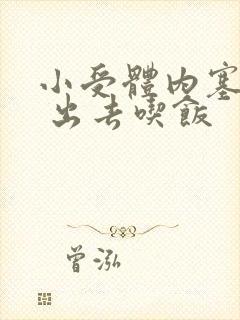 小受體內塞
出去喫飯
曾泓